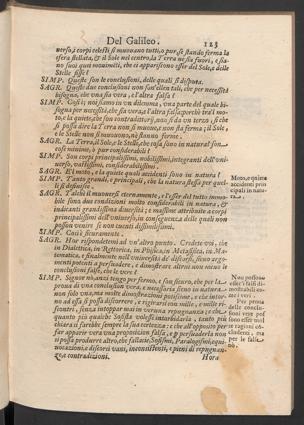 Del Galileo. 123
uerso, i corpi celesti si muouano tutti, o pur, se stando ferma la
sfera stellata, & il Sole nel centro, la Terra ne sia fuori, e sia-
no suoi quei mouimẽti, che ci appariscono esser del Sole, e delle
Stelle fisse?
SIMP. Queste son le conclusioni, delle quali si disputa.
SAGR. Queste due conclusioni non son'elleno tali, che per necessità
bisogna, che vna sia vera, e l'altra falsa?
SIMP. Così è; noi siamo in vn dilemma, vna parte del quale bi-
sogna per necessità, che sia vera; e l'altra falsa; perchè trà'l mo-
to, e la quiete, che son contradittorij, non si dà vn terzo, sì che
si possa dire la Terra non si muoue, e non sta ferma; il Sole,
e le Stelle non si muouono, nè stanno ferme.
SAGR. La Terra, il Sole, e le Stelle, che cosa sono in natura? son
cose minime, ò pur considerabili?
SIMP. Son corpi principalissimi, nobilissimi, integranti dell'vni-
uerso, vastissimi, considerabilissimi.
SAGR. E'l moto, e la quiete quali accidenti sono in natura?
SIMP. Tanto grandi, e principali, che la natura stessa per que-
li si definisce.
SAGR. Talchè il muouersi eternamente, e l'esser del tutto immo-
bile sono due condizioni molto considerabili in natura, &
indicanti grandissima diuersità; e massime attribuite a corpi
principalissimi dell'Vniuerso, in conseguenza delle quali non
possono venire se non euenti dissimilissimi.
SIMP. Così è sicuramente.
SAGR. Hor rispondetemi ad vn'altro punto. Credete voi, che
in Dialettica, in Rettorica, in Fisica, in Metafisica, in Ma-
tematica, e finalmente nell'vniuersità de' discorsi, sieno argo-
menti potenti a persuadere, e dimostrare altrui non meno le
conclusioni false, che le vere?
SIMP. Signor nò, anzi tengo per fermo, e son sicuro, che per la
proua di vna conclusione vera, e necessaria sieno in natura
non solo vna, ma molte dimostrazioni potissime, e che intor-
no ad essa si possa discorrere, e rigirarsi con mille, e mille ri-
scontri, senza intoppar mai in veruna repugnanza; e che
quanto più qualche Sofista volesse intorbidarla, tanto più
chiara si farebbe sempre la sua certezza: e che all'opposito per
far apparir vera vna proposizion falsa, e per persuaderla non
si possa produrre altro, che fallacie, Sofismi, Paralogismi, equi-
uocazioni, e discorsi vani, inconsistenti, e pieni di repugnan-
ze, e contradizioni. Hora
Moto, e quiete
accidenti prin
cipali in natu-
ra.
Non possono
dimostrarsi
vere
Per proua
delle conclu-
sioni vere pos
sono esser mol
te ragioni co
cludenti, ma
per le false
nò.